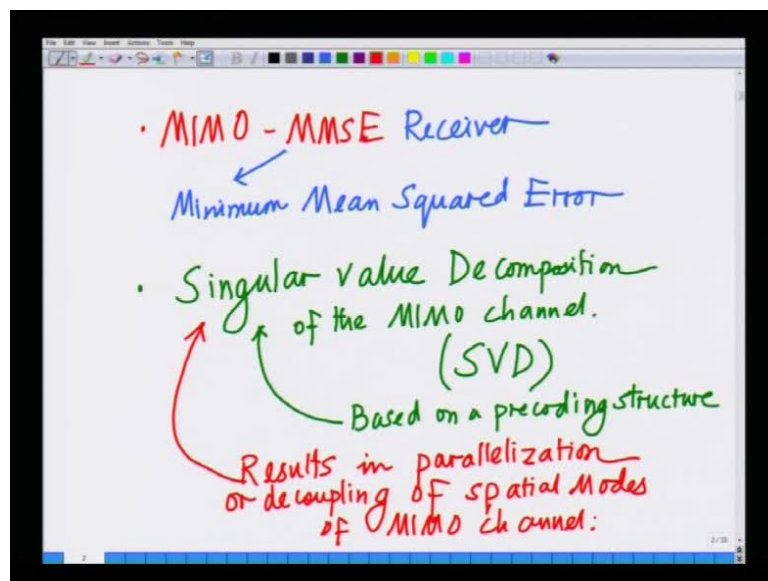 File Edit View Insert Actions Tools Help
· MIMO - MMSE Receiver
Minimum Mean Squared Error
· Singular value Decomposition
of the MIMO channel.
(SVD)
Based on a precoding structure
Results in parallelization
or decoupling of spatial Modes
of MIMO channel:
2